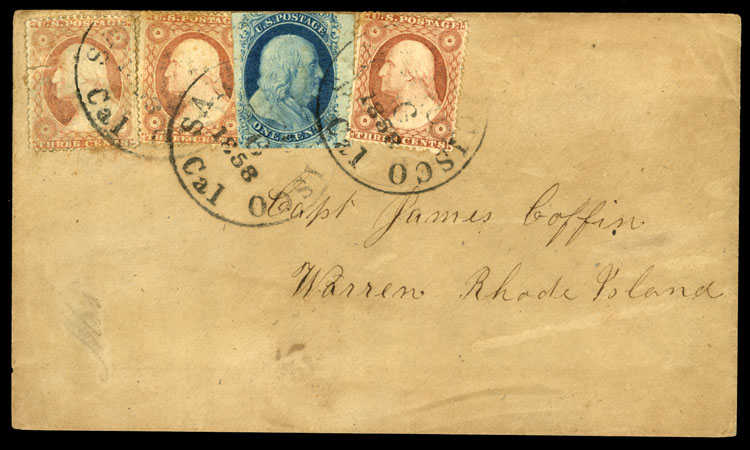 U.S. POSTAGE
THREE CENTS
U.S. POSTAGE
THREE CENTS
U.S. POSTAGE
ONE CENT
U.S. POSTAGE
THREE CENTS
Cal
1858
Cal
1858
CISCO Cal
Capt James Coffin
Warren Rhode Island